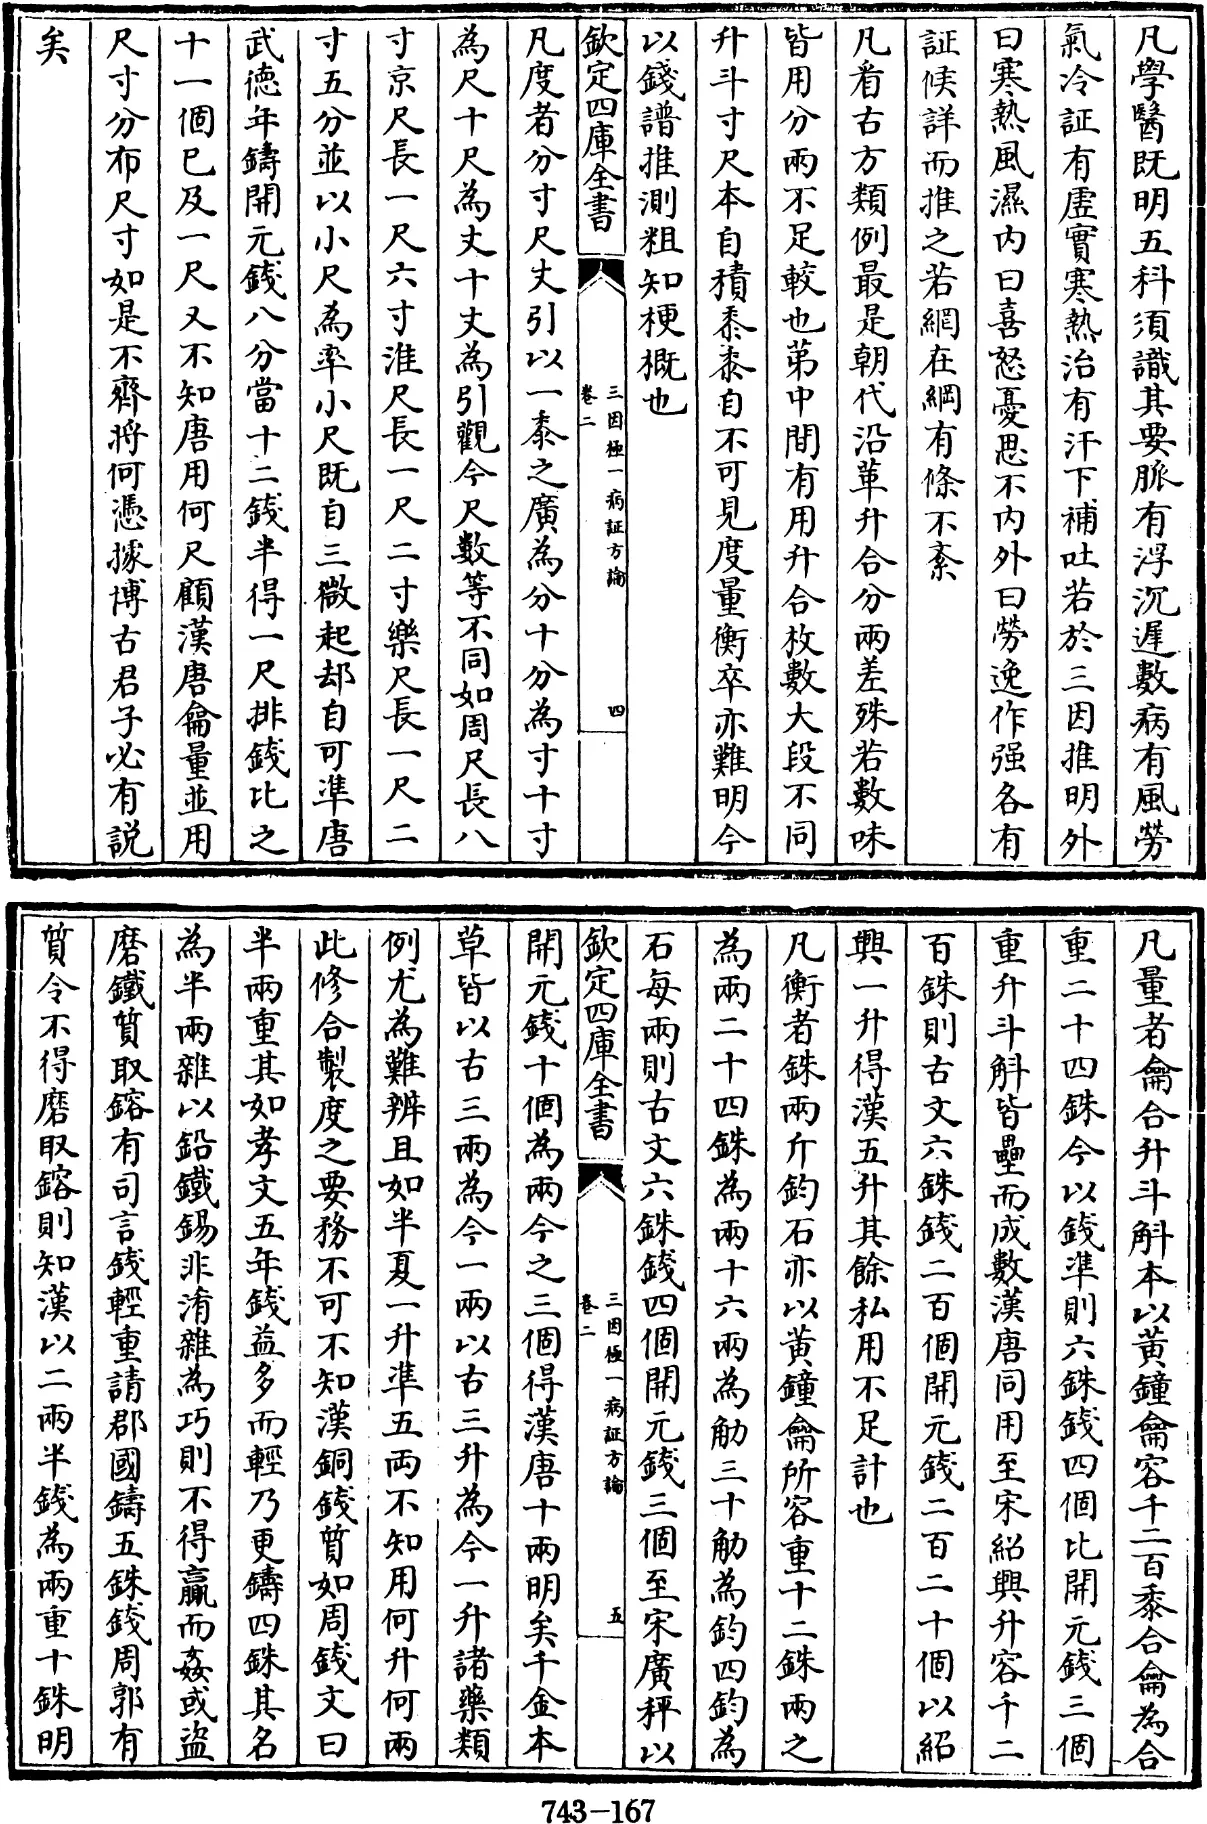 凡學醫既明五科須識其要脈有浮沉遲數病有風勞
氣冷証有虛實寒熱治有汗下補吐若於三因推明外
曰寒熱風濕内曰喜怒憂思不内外曰勞逸作强各有
証候詳而推之若網在綱有條不紊
凡看古方類例最是朝代沿革升合分兩差殊若數味
皆用分兩不足較也第中間有用升合枚數大段不同
升斗寸尺本自積黍黍自不可見度量衡卒亦難明今
以錢譜推測粗知梗概也
欽定四庫全書
三因極一病証方論
卷二
四
凡度者分寸尺丈引以一黍之廣為分十分為寸十寸
為尺十尺為丈十丈為引觀今尺數等不同如周尺長八
寸京尺長一尺六寸淮尺長一尺二寸樂尺長一尺二
寸五分並以小尺為率小尺既自三微起却自可準唐
武德年鑄開元錢八分當十二錢半得一尺排錢比之
十一個已及一尺又不知唐用何尺顧漢唐龠量並用
尺寸分布尺寸如是不齊將何憑據博古君子必有說
矣
凡量者龠合升斗斛本以黃鐘龠容千二百黍合龠為合
重二十四銖今以錢準則六銖錢四個比開元錢三個
重升斗斛皆壘而成數漢唐同用至宋紹興升容千二
百銖則古文六銖錢二百個開元錢二百二十個以紹
興一升得漢五升其餘私用不足計也
凡衡者銖兩斤鈞石亦以黃鐘龠所容重十二銖兩之
為兩二十四銖為兩十六兩為觔三十觔為鈞四鈞為
石每兩則古文六銖錢四個開元錢三個至宋廣秤以
欽定四庫全書
三因極一病証方論
卷二
五
開元錢十個為兩今之三個得漢唐十兩明矣千金本
草皆以古三兩為今一兩以古三升為今一升諸藥類
例尤為難辨且如半夏一升準五兩不知用何升何兩
此修合製度之要務不可不知漢銅錢質如周錢文曰
半兩重其如孝文五年錢益多而輕乃更鑄四銖其名
為半兩雜以鉛鐵錫非淆雜為巧則不得贏而姦或盜
磨鐵質取鎔有司言錢輕重請郡國鑄五銖錢周郭有
質令不得磨取鎔則知漢以二兩半錢為兩重十銖明
743-167